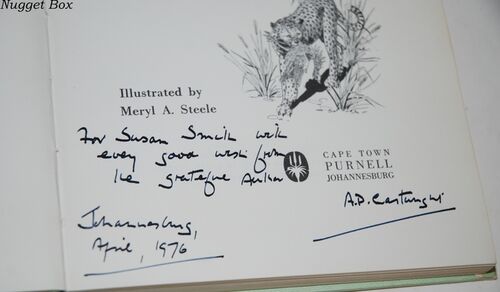 Nugget Box
Illustrated by
Meryl A. Steele
For Susan Smith with
every good wish from
the grateful Author
CAPE TOWN
PURNELL
JOHANNESBURG
A.P. Cartwright
Johannesburg,
April, 1976